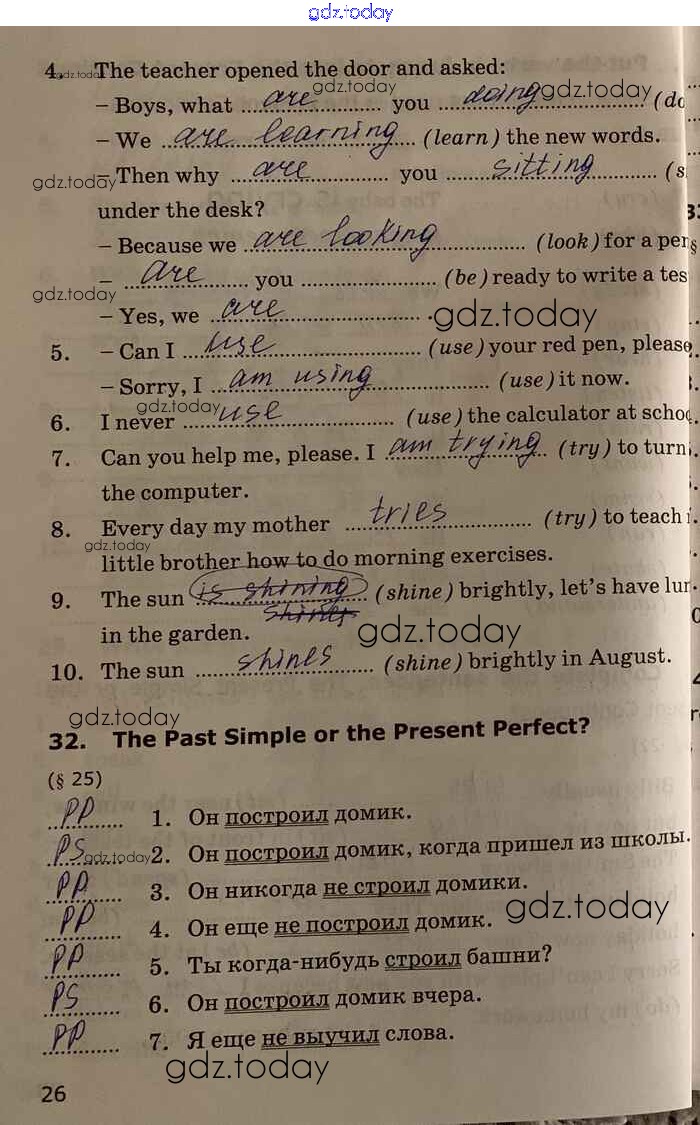 gdz.today
4. The teacher opened the door and asked:
– Boys, what are you doing (do
– We are learning (learn) the new words.
– Then why are you sitting (s
under the desk?
– Because we are looking (look) for a per
– Are you (be) ready to write a tes
– Yes, we are .
5. – Can I use (use) your red pen, please
– Sorry, I am using (use) it now.
6. I never use (use) the calculator at schoo
7. Can you help me, please. I am trying (try) to turn
the computer.
8. Every day my mother tries (try) to teach
little brother how to do morning exercises.
9. The sun is shining (shine) brightly, let's have lun
shines
in the garden.
10. The sun shines (shine) brightly in August.
32. The Past Simple or the Present Perfect?
(§ 25)
PP 1. Он построил домик.
PS 2. Он построил домик, когда пришел из школы.
PP 3. Он никогда не строил домики.
PP 4. Он еще не построил домик.
PP 5. Ты когда-нибудь строил башни?
PS 6. Он построил домик вчера.
PP 7. Я еще не выучил слова.
26
gdz.today
gdz.today
gdz.today
gdz.today
gdz.today
gdz.today
gdz.today
gdz.today
gdz.today
gdz.today
gdz.today
gdz.today
gdz.today
gdz.today